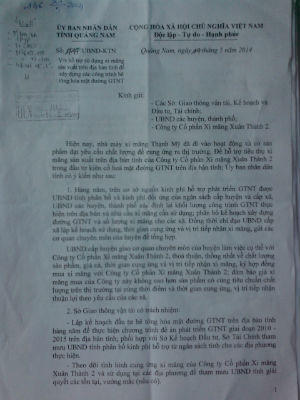 ỦY BAN NHÂN DÂN
TỈNH QUẢNG NAM
CỘNG HÒA XÃ HỘI CHỦ NGHĨA VIỆT NAM
Độc lập - Tự do - Hạnh phúc
Số: /UBND-KTN
Quảng Nam, ngày tháng 3 năm 2014
V/v hỗ trợ sử dụng xi măng
sản xuất trên địa bàn tỉnh để
xây dựng các công trình bê
tông hóa mặt đường GTNT
Kính gửi:
- Các Sở: Giao thông vận tải, Kế hoạch và
Đầu tư, Tài chính;
- UBND các huyện, thành phố;
- Công ty Cổ phần Xi măng Xuân Thành 2.
Hiện nay, nhà máy xi măng Thạnh Mỹ đã đi vào hoạt động và có sản
phẩm đạt yêu cầu chất lượng để cung ứng ra thị trường. Để hỗ trợ tiêu thụ xi
măng sản xuất trên địa bàn tỉnh của Công ty Cổ phần Xi măng Xuân Thành 2
trong đầu tư kiên cố hoá mặt đường GTNT trên địa bàn tỉnh; Ủy ban nhân dân
tỉnh có ý kiến như sau:
1. Hàng năm, trên cơ sở nguồn kinh phí hỗ trợ phát triển GTNT được
UBND tỉnh phân bổ và kinh phí đối ứng của ngân sách cấp huyện và cấp xã,
UBND các huyện, thành phố xác định lại khối lượng công trình GTNT thực
hiện trên địa bàn và nhu cầu xi măng cần sử dụng; phân bổ kế hoạch xây dựng
đường GTNT và số lượng xi măng cho các xã. Đồng thời chỉ đạo UBND cấp
xã lập kế hoạch sử dụng, thời gian cung ứng và vị trí tiếp nhận xi măng, gửi các
cơ quan chuyên môn của huyện để tổng hợp.
UBND cấp huyện giao cơ quan chuyên môn của huyện làm việc cụ thể với
Công ty Cổ phần Xi măng Xuân Thành 2, thoả thuận, thống nhất về chất lượng
sản phẩm, giá cả, thời gian cung ứng và vị trí tiếp nhận xi măng, ký hợp đồng
mua xi măng với Công ty Cổ phần Xi măng Xuân Thành 2; đảm bảo giá xi
măng mua của Công ty này không cao hơn sản phẩm có cùng tiêu chuẩn chất
lượng trên thị trường tại cùng thời điểm và thời gian cung ứng, vị trí tiếp nhận
thuận lợi theo yêu cầu của các xã.
2. Sở Giao thông vận tải có trách nhiệm:
- Lập kế hoạch đầu tư bê tông hóa mặt đường GTNT trên địa bàn tỉnh
hàng năm để thực hiện chương trình đề án phát triển GTNT giai đoạn 2010 -
2015 trên địa bàn tỉnh; phối hợp với Sở Kế hoạch Đầu tư, Sở Tài chính tham
mưu UBND tỉnh phân bổ kinh phí hỗ trợ từ ngân sách tỉnh cho các địa phương
thực hiện.
- Theo dõi tình hình cung ứng xi măng của Công ty Cổ phần Xi măng
Xuân Thành 2 và sử dụng tại các địa phương để tham mưu UBND tỉnh giải
quyết các tồn tại, vướng mắc (nếu có).
1